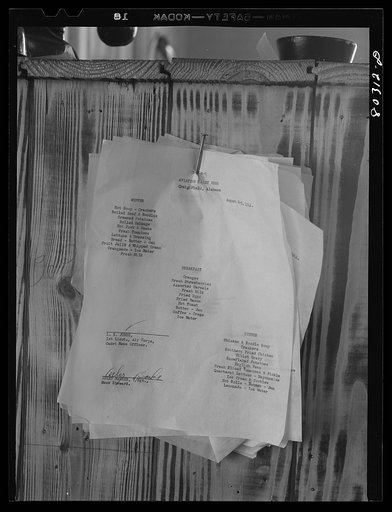 18
KODAK
SAFETY
Craig Field, Alabama
August
DINNER
Hot Soup - Crackers
Boiled Beef & Noodles
Creamed Potatoes
Boiled Cabbage
Fresh Tomatoes
Lettuce & Dressing
Bread - Butter - Jam
Fruit Jello & Whipped Cream
Ice Water
Fresh Milk
BREAKFAST
Oranges
Fresh Strawberries
Assorted Cereals
Fresh Milk
Fried Eggs
Fried Bacon
Hot Toast
Butter - Jam
Coffee - Cream
Ice Water
1st Lieut., Air Corps,
Cadet Mess Officer.
Mess Steward.
Chicken & Noodle Soup
Crackers
Southern Fried Chicken
Giblet Gravy
Snowflaked Potatoes
English Peas
Fresh Sliced Tomatoes & Pickle
Quartered Lettuce - Mayonnaise
Ice Cream & Cookies
Hot Rolls - Butter - Jam
Lemonade - Ice Water